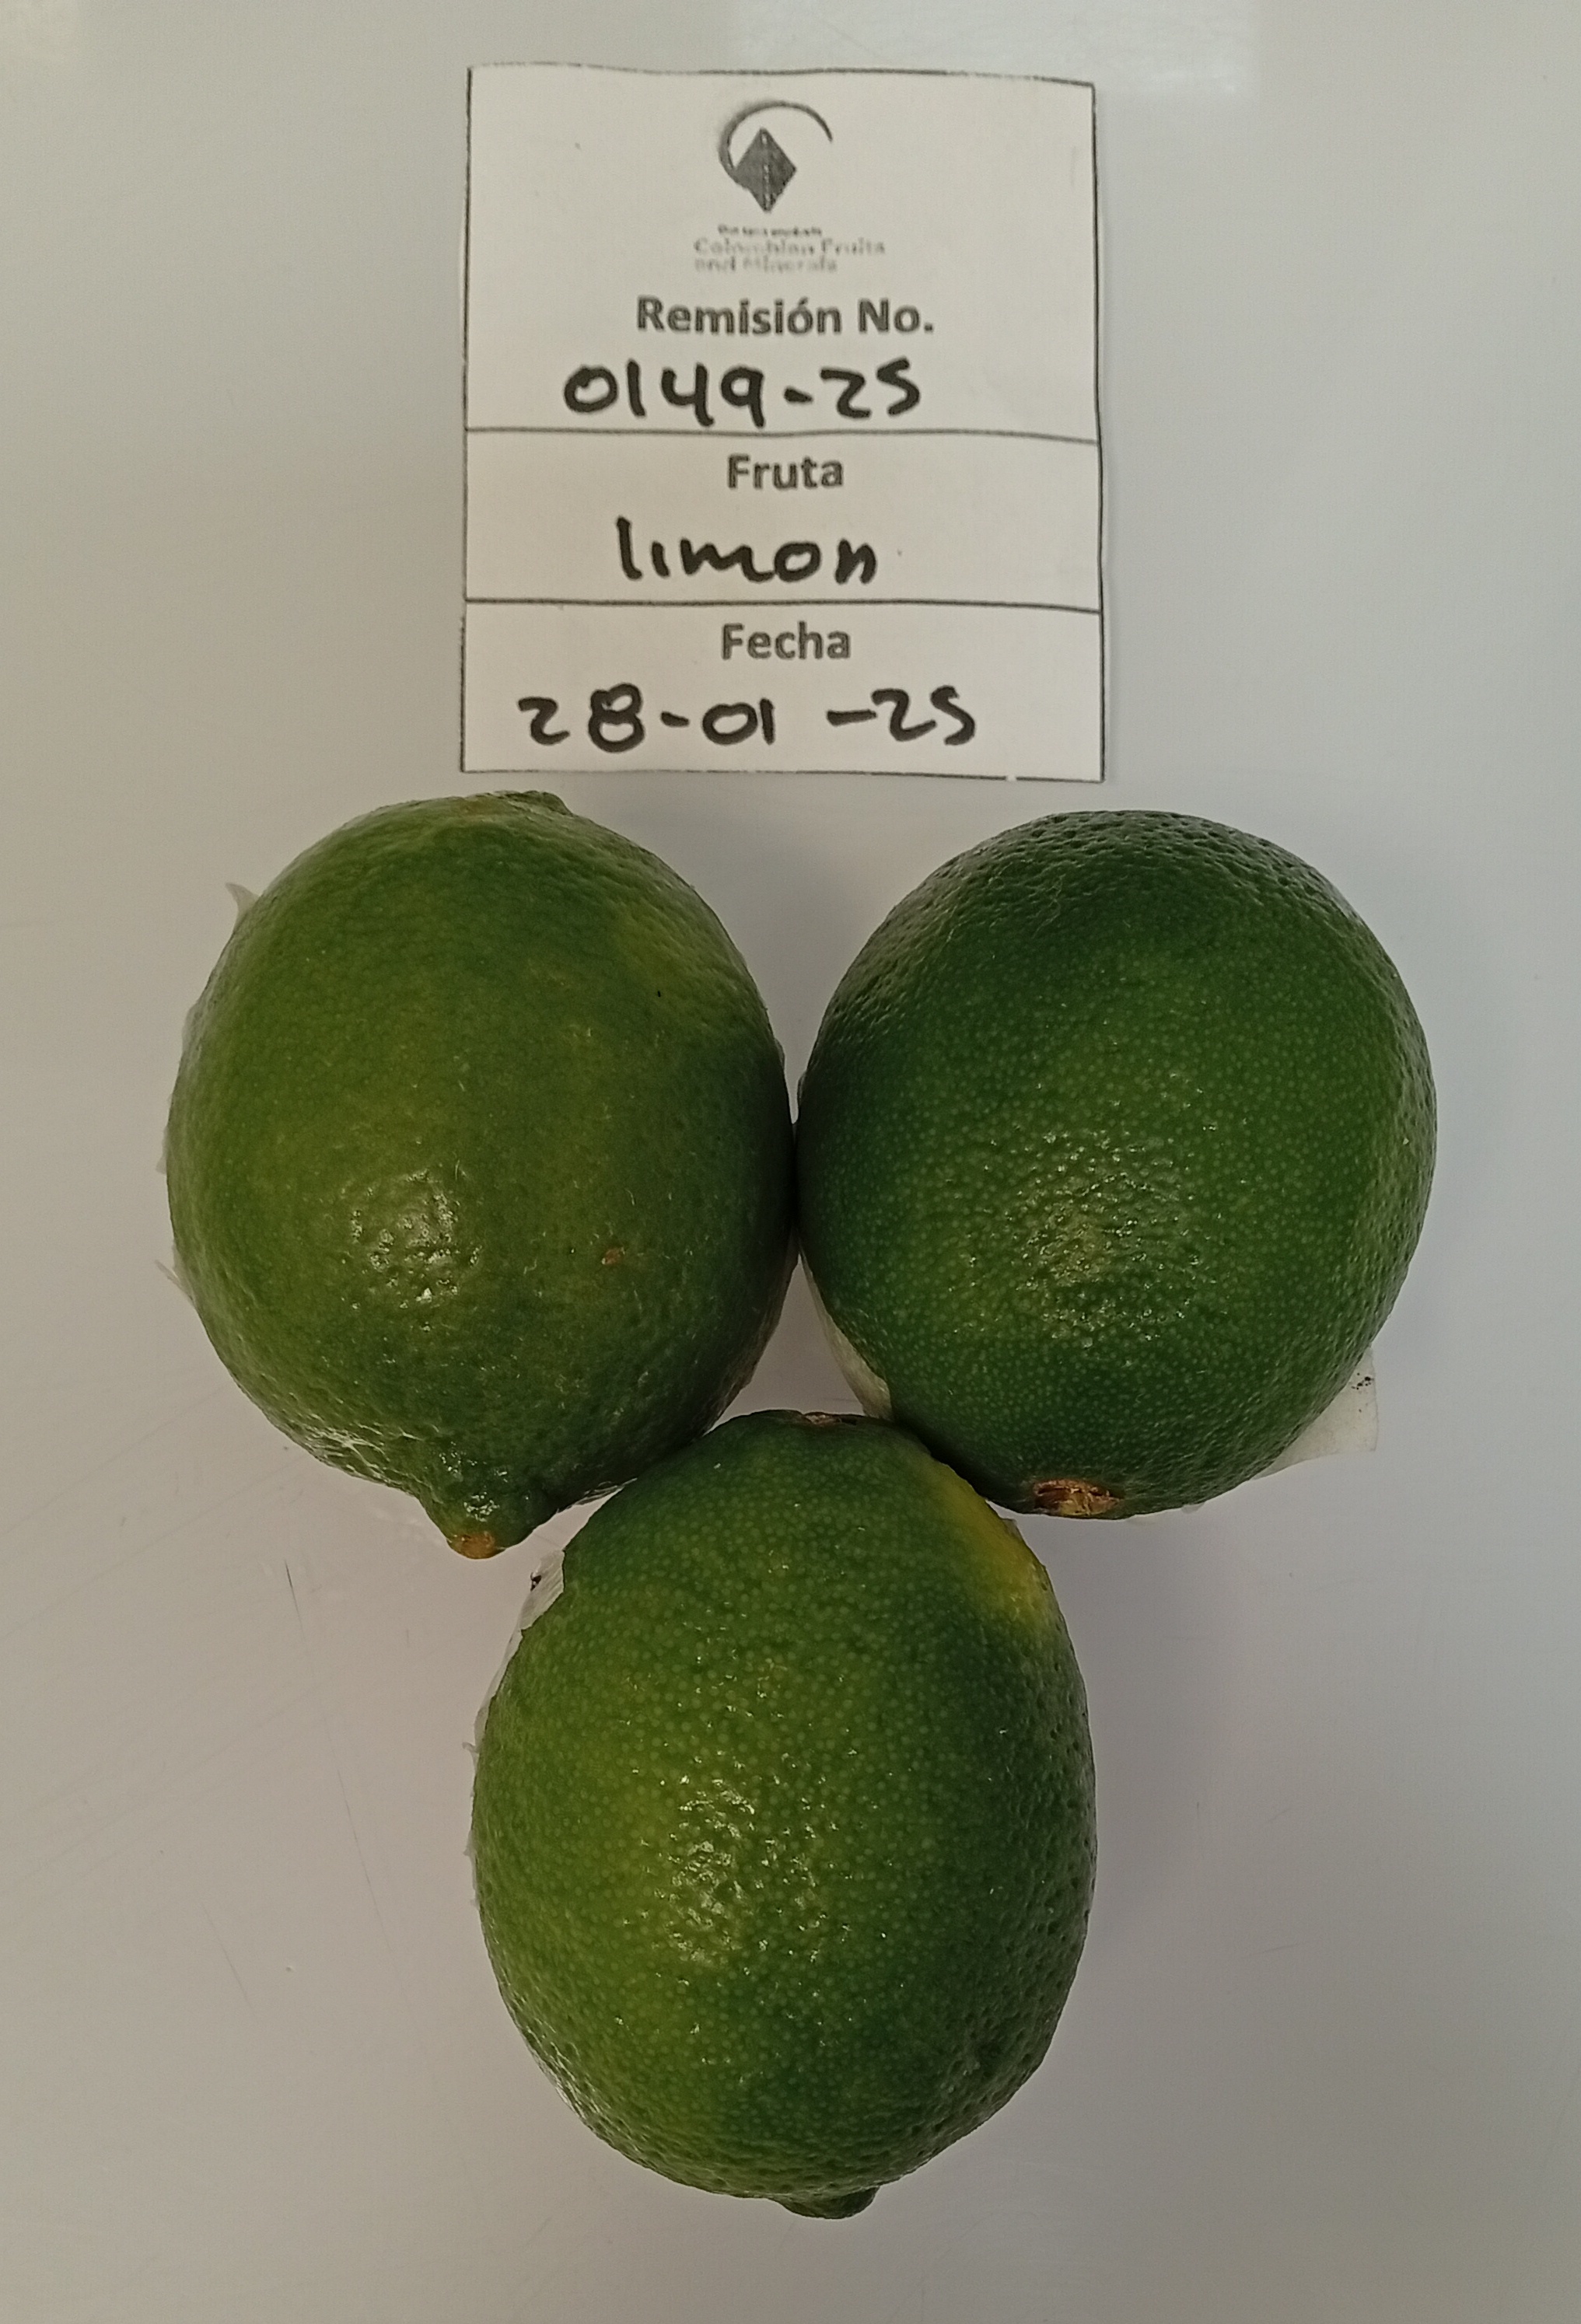 Colombian Fruits
and Minerals
Remisión No.
0149-25
Fruta
limon
Fecha
28-01-25